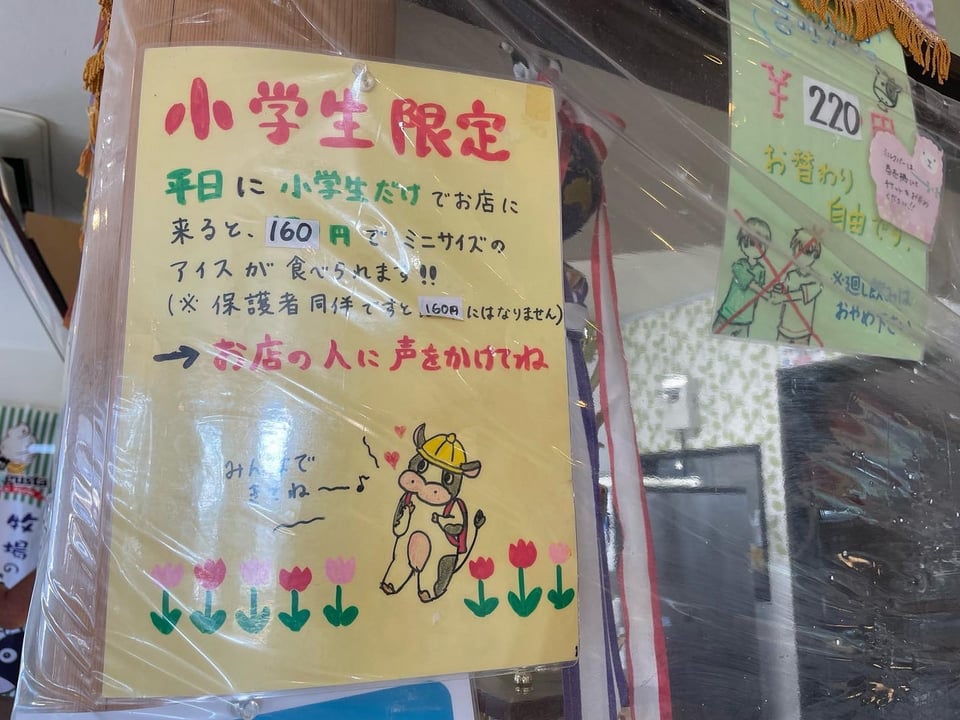 小学生限定
平日に小学生だけでお店に
来ると、160円でミニサイズの
アイスが食べられます!!
(※保護者同伴ですと160円にはなりません)
→お店の人に声をかけてね
みんなで
きてね〜♪
¥220円
お替わり
自由です。
※廻し飲みは
おやめ下さい
牧場の